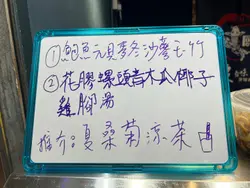 ①鮑魚元貝麥冬沙蔘玉竹
②花膠螺頭青木瓜椰子
雞腳湯
推介:夏桑菊涼茶